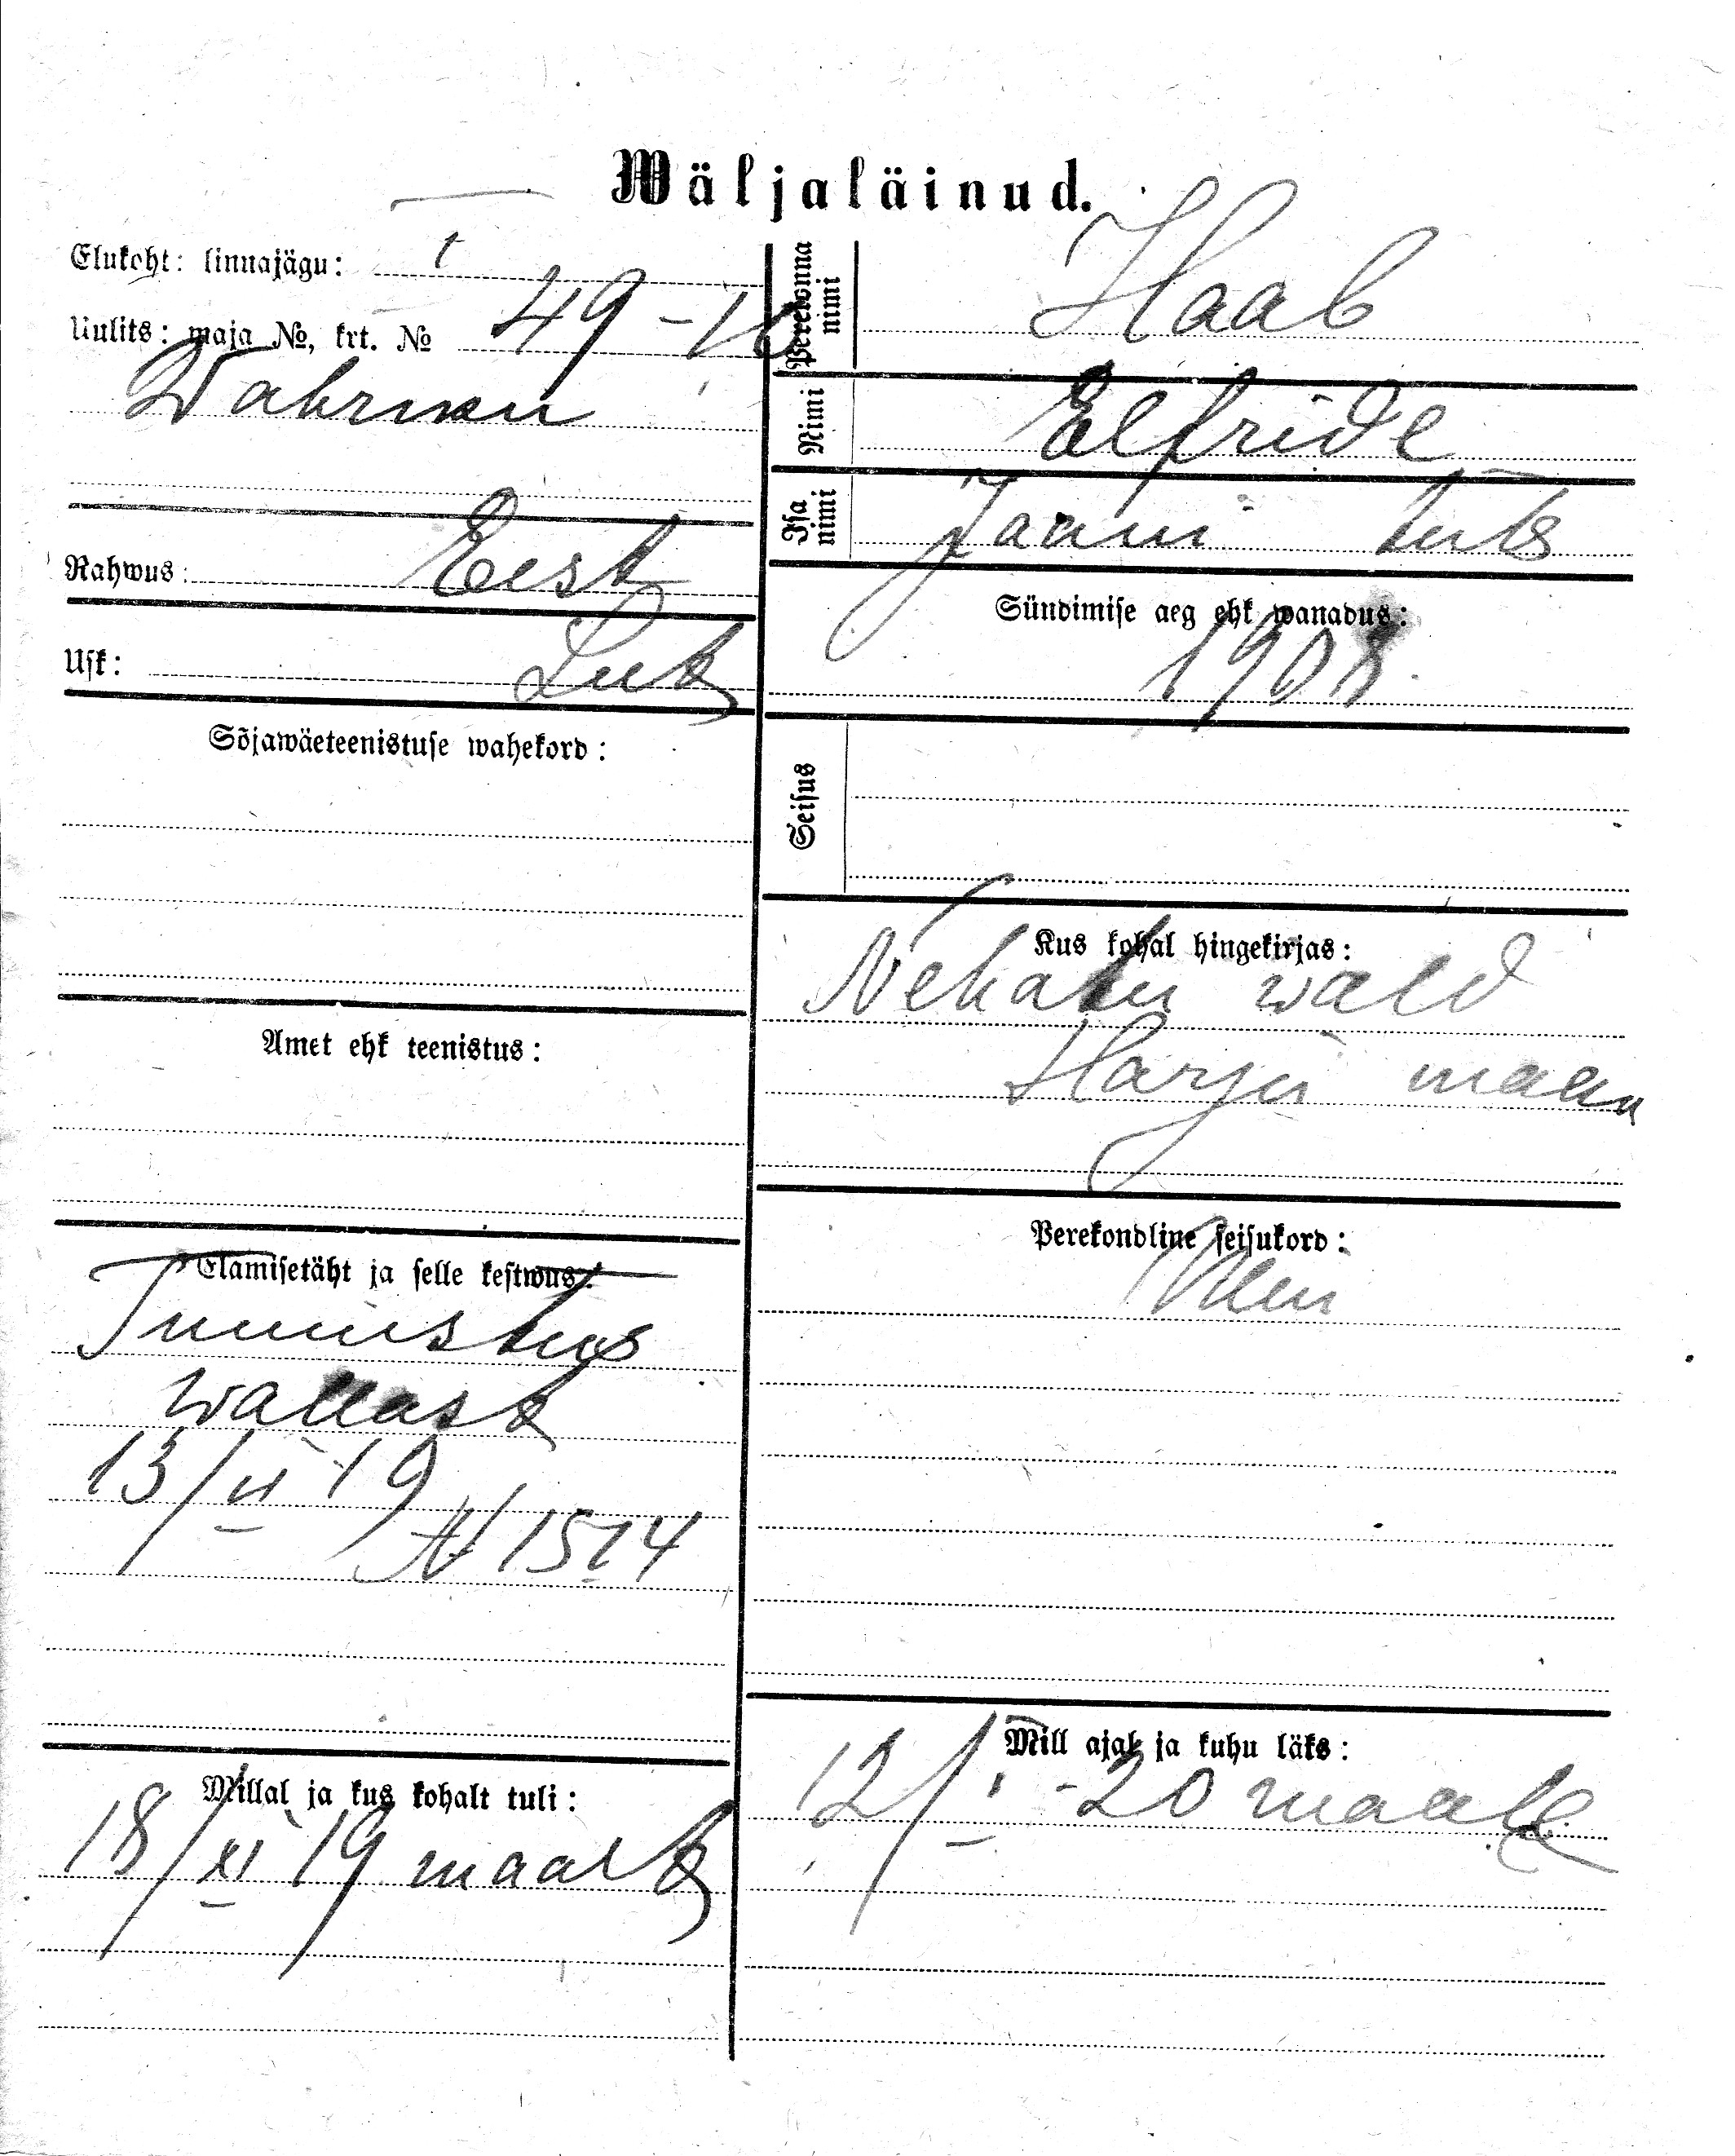 Wäljaläinud.
Elukoht: linnajägu: I
Uulits: maja №, krt. № 49-10
Wabriku
Rahwus: Eest
Usk: Lut
Sõjawäeteenistuse wahekord:
Amet ehk teenistus:
Elamisetäht ja selle kestwus:
Tunnistus
wallast
13/VI 19
№ 1514
Millal ja kus kohalt tuli:
18/XI 19 maalt
Perekonna nimi Haab
Nimi Elfride
Isa nimi Jaani tüts
Sündimise aeg ehk wanadus:
1908.
Seisus
Kus kohal hingekirjas:
Nehatu wald
Harju maan
Perekondline seisukord:
Mill ajal ja kuhu läks:
12/I -20 maale